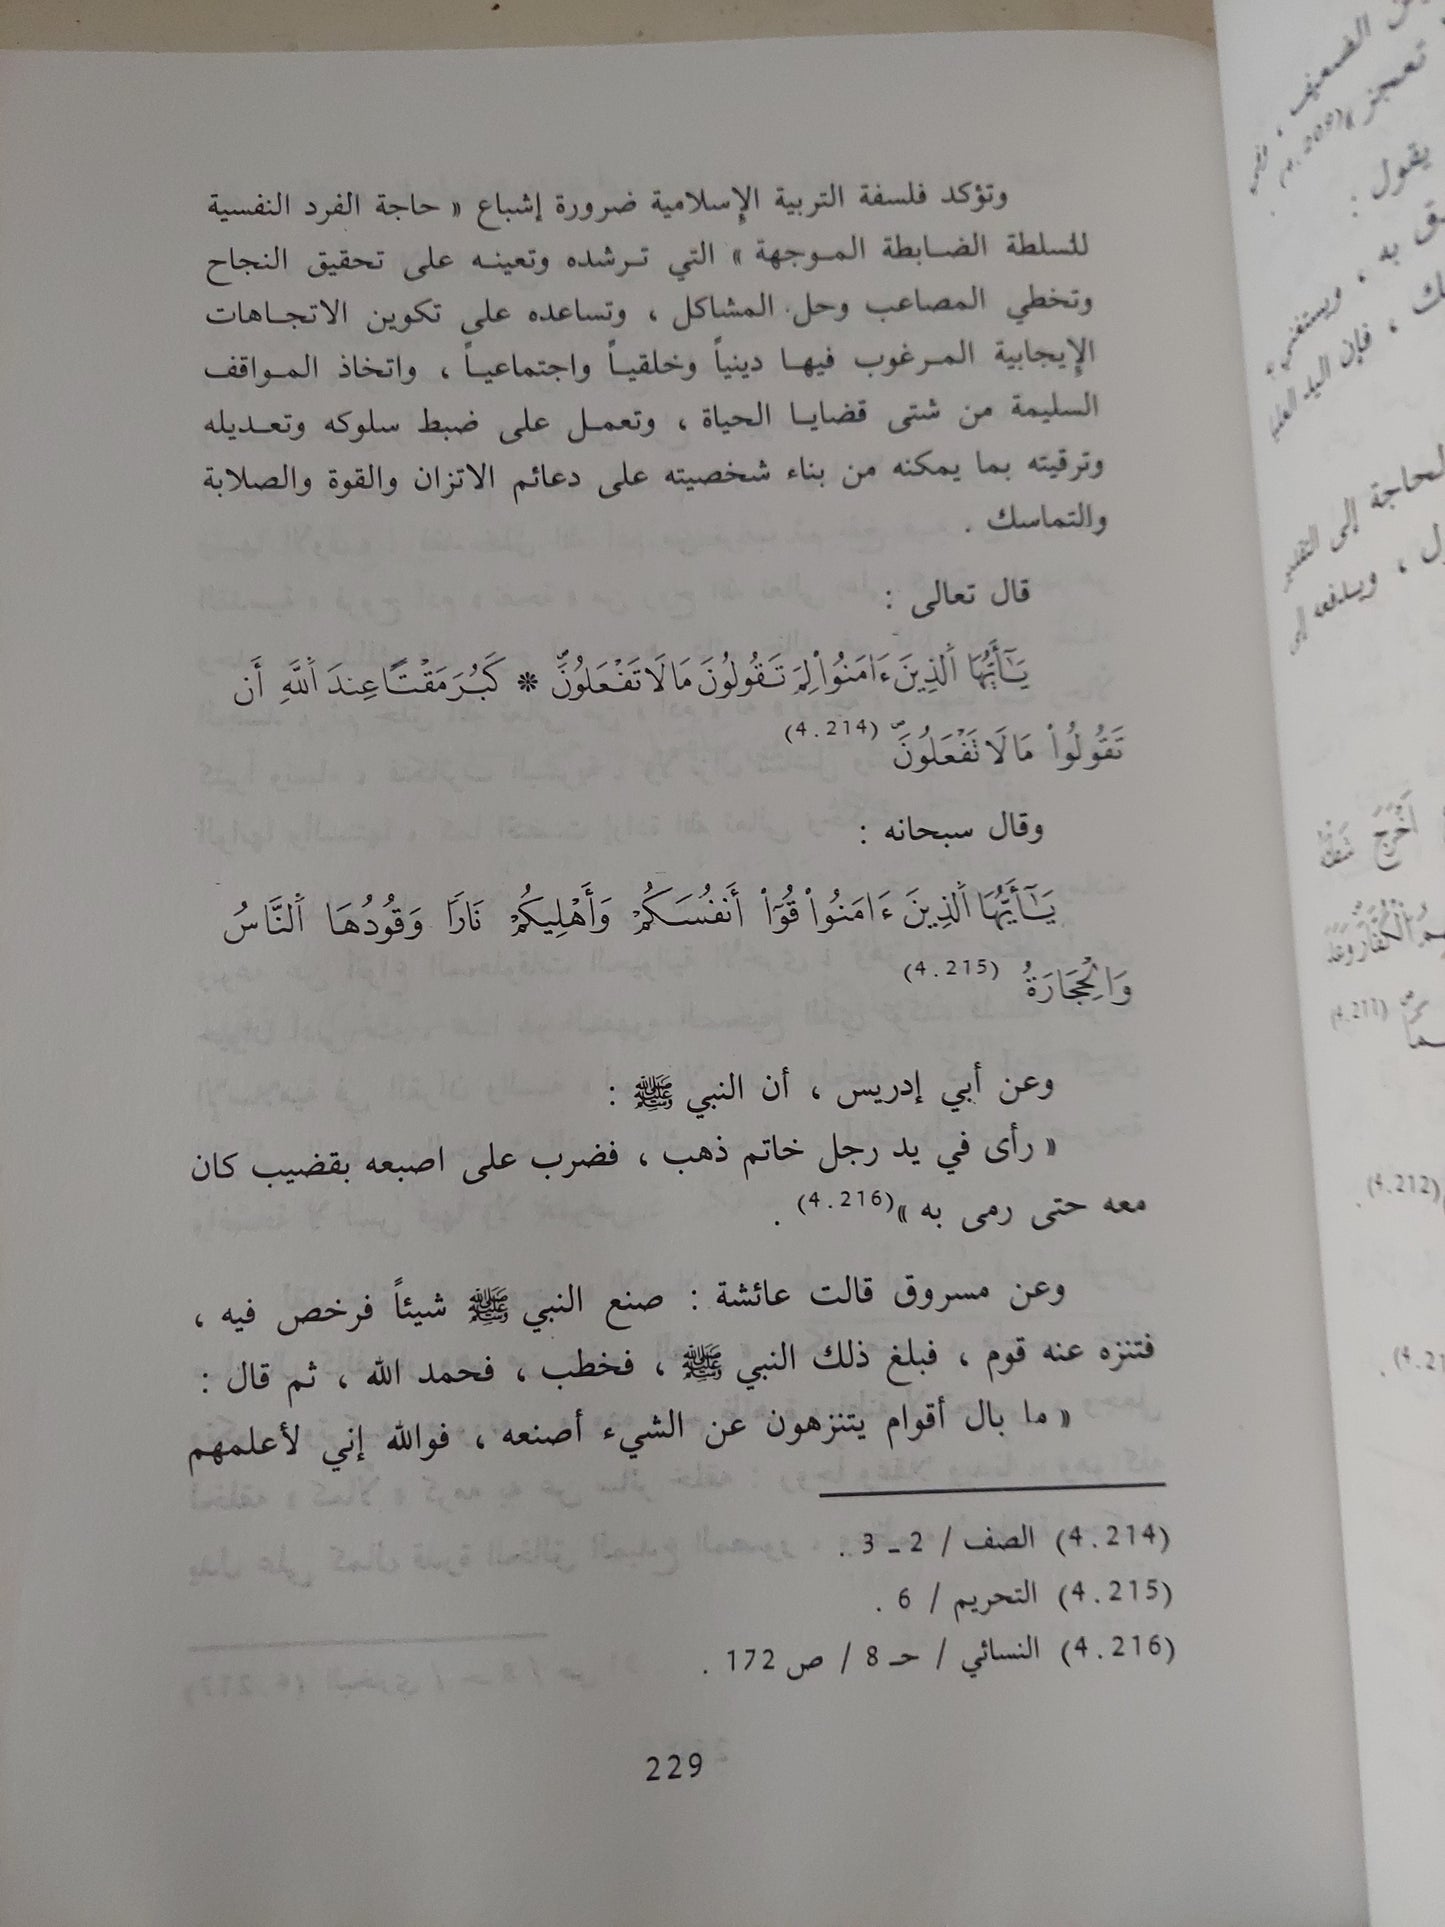 وتؤكد فلسفة التربية الإسلامية ضرورة إشباع « حاجة الفرد النفسية
للسلطة الضابطة الموجهة » التي ترشده وتعينه على تحقيق النجاح
وتخطي المصاعب وحل المشاكل ، وتساعده على تكوين الاتجاهات
الإيجابية المرغوب فيها دينياً وخلقياً واجتماعياً ، واتخاذ المواقف
السليمة من شتى قضايا الحياة ، وتعمل على ضبط سلوكه وتعديله
وترقيته بما يمكنه من بناء شخصيته على دعائم الاتزان والقوة والصلابة
والتماسك .
قال تعالى :
يَٰٓأَيُّهَا ٱلَّذِينَ ءَامَنُوا۟ لِمَ تَقُولُونَ مَا لَا تَفْعَلُونَ * كَبُرَ مَقْتًا عِندَ ٱللَّهِ أَن
تَقُولُوا۟ مَا لَا تَفْعَلُونَ (4.214)
وقال سبحانه :
يَٰٓأَيُّهَا ٱلَّذِينَ ءَامَنُوا۟ قُوٓا۟ أَنفُسَكُمْ وَأَهْلِيكُمْ نَارًا وَقُودُهَا ٱلنَّاسُ
وَٱلْحِجَارَةُ (4.215)
وعن أبي إدريس ، أن النبي ﷺ :
« رأى في يد رجل خاتم ذهب ، فضرب على اصبعه بقضيب كان
معه حتى رمى به »(4.216) .
وعن مسروق قالت عائشة : صنع النبي ﷺ شيئاً فرخص فيه ،
فتنزه عنه قوم ، فبلغ ذلك النبي ﷺ ، فخطب ، فحمد الله ، ثم قال :
« ما بال أقوام يتنزهون عن الشيء أصنعه ، فوالله إني لأعلمهم
(4.214) الصف / 2 ـ 3 .
(4.215) التحريم / 6 .
(4.216) النسائي / حـ 8 / ص 172 .
229
الضعيف ،
تعجز »(209.
يقول :
به ، ويستغني
، فإن اليد العليا
الحاجة إلى
، ويدفعه إلى
أَخْرَجَ
(4.211)
(4.212) .